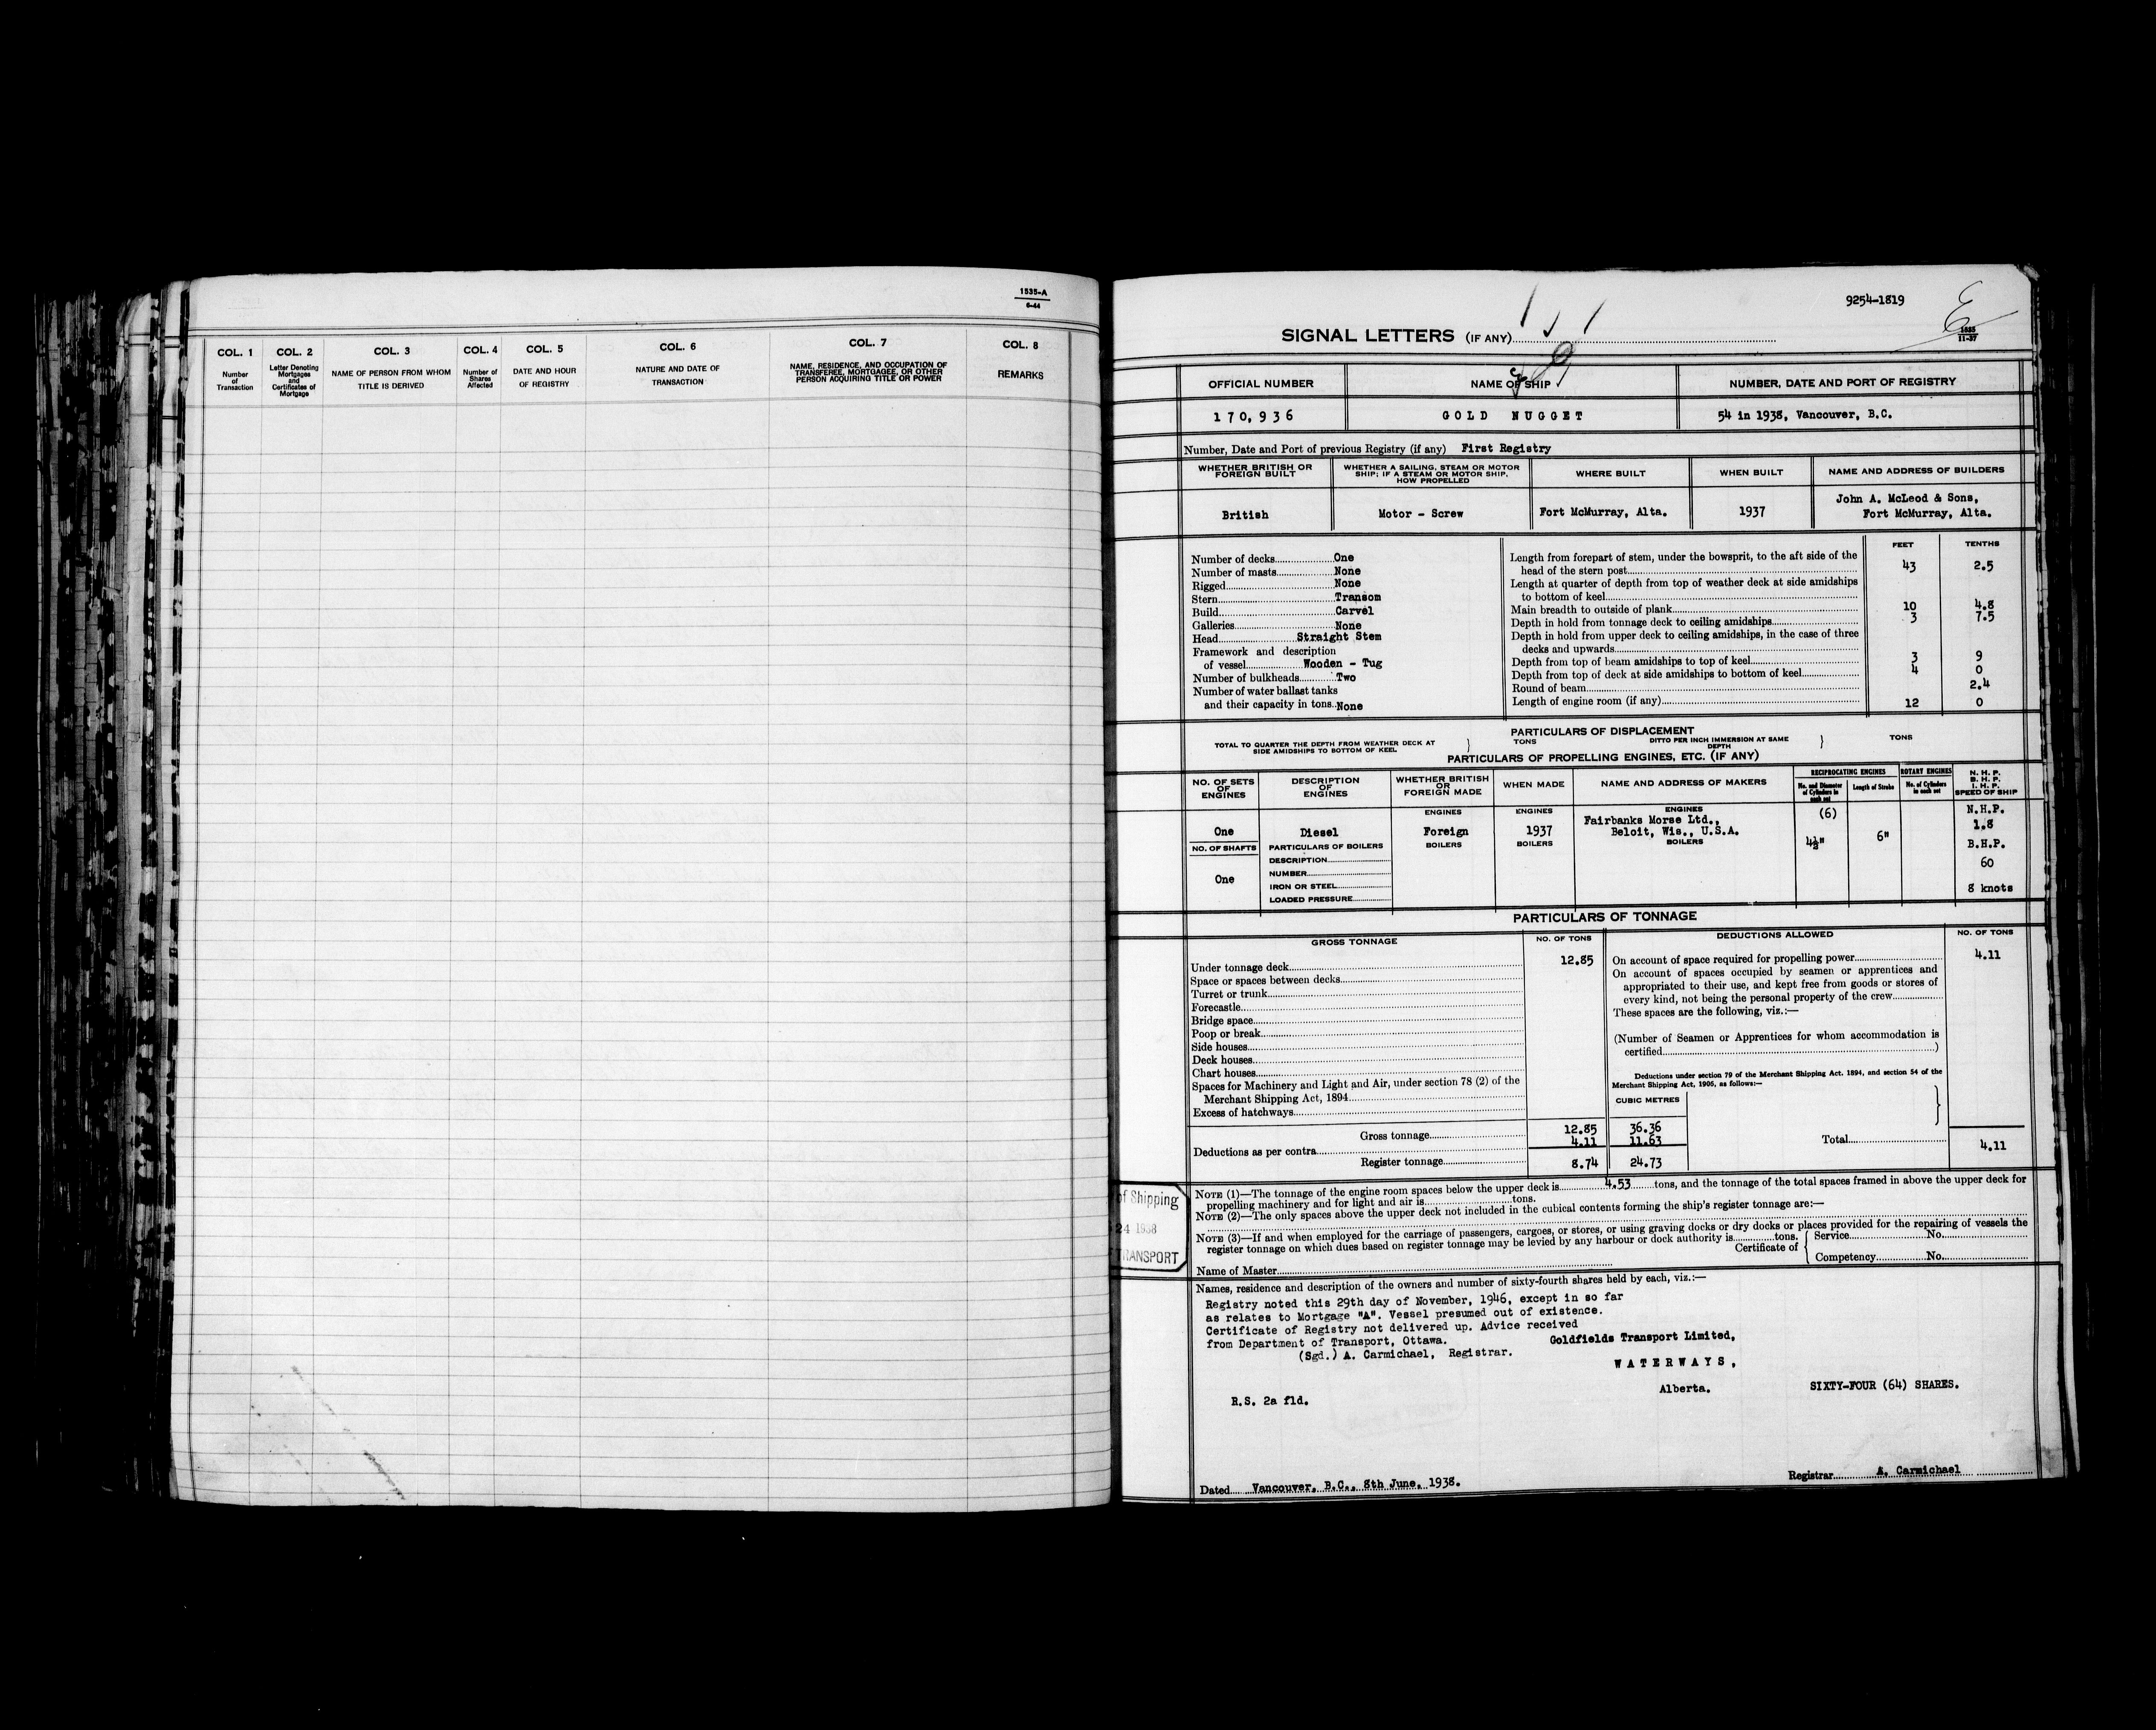 1535-A
6-44
COL. 1
Number
of
Transaction
COL. 2
Letter Denoting
Mortgages
and
Certificates of
Mortgage
COL. 3
NAME OF PERSON FROM WHOM
TITLE IS DERIVED
COL. 4
Number of
Shares
Affected
COL. 5
DATE AND HOUR
OF REGISTRY
COL. 6
NATURE AND DATE OF
TRANSACTION
COL. 7
NAME, RESIDENCE, AND OCCUPATION OF
TRANSFEREE, MORTGAGEE, OR OTHER
PERSON ACQUIRING TITLE OR POWER
COL. 8
REMARKS
9254-1819
11-37
SIGNAL LETTERS (IF ANY)
OFFICIAL NUMBER
NAME OF SHIP
NUMBER, DATE AND PORT OF REGISTRY
170,936
GOLD NUGGET
54 in 1938, Vancouver, B.C.
Number, Date and Port of previous Registry (if any) First Registry
WHETHER BRITISH OR
FOREIGN BUILT
WHETHER A SAILING, STEAM OR MOTOR
SHIP; IF A STEAM OR MOTOR SHIP,
HOW PROPELLED
WHERE BUILT
WHEN BUILT
NAME AND ADDRESS OF BUILDERS
British
Motor - Screw
Fort McMurray, Alta.
1937
John A. McLeod & Sons,
Fort McMurray, Alta.
Number of decks One
Number of masts None
Rigged None
Stern Transom
Build Carvel
Galleries None
Head Straight Stem
Framework and description
of vessel Wooden - Tug
Number of bulkheads Two
Number of water ballast tanks
and their capacity in tons None
FEET TENTHS
Length from forepart of stem, under the bowsprit, to the aft side of the
head of the stern post 43 2.5
Length at quarter of depth from top of weather deck at side amidships
to bottom of keel
Main breadth to outside of plank 10 4.8
Depth in hold from tonnage deck to ceiling amidships 3 7.5
Depth in hold from upper deck to ceiling amidships, in the case of three
decks and upwards
Depth from top of beam amidships to top of keel 3 9
Depth from top of deck at side amidships to bottom of keel 4 0
Round of beam 2.4
Length of engine room (if any) 12 0
PARTICULARS OF DISPLACEMENT
TOTAL TO QUARTER THE DEPTH FROM WEATHER DECK AT
SIDE AMIDSHIPS TO BOTTOM OF KEEL
TONS
DITTO PER INCH IMMERSION AT SAME
DEPTH
TONS
PARTICULARS OF PROPELLING ENGINES, ETC. (IF ANY)
NO. OF SETS
OF
ENGINES
DESCRIPTION
OF
ENGINES
WHETHER BRITISH
OR
FOREIGN MADE
WHEN MADE
NAME AND ADDRESS OF MAKERS
RECIPROCATING ENGINES
No. and Diameter
of Cylinders in
each set
Length of Stroke
ROTARY ENGINES
No. of Cylinders
in each set
N. H. P.
B. H. P.
I. H. P.
SPEED OF SHIP
One
NO. OF SHAFTS
One
Diesel
PARTICULARS OF BOILERS
DESCRIPTION
NUMBER
IRON OR STEEL
LOADED PRESSURE
ENGINES
Foreign
BOILERS
ENGINES
1937
BOILERS
ENGINES
Fairbanks Morse Ltd.,
Beloit, Wis., U.S.A.
BOILERS
(6)
4½"
6"
N.H.P.
1.8
B.H.P.
60
8 knots
PARTICULARS OF TONNAGE
GROSS TONNAGE
NO. OF TONS
Under tonnage deck 12.85
Space or spaces between decks
Turret or trunk
Forecastle
Bridge space
Poop or break
Side houses
Deck houses
Chart houses
Spaces for Machinery and Light and Air, under section 78 (2) of the
Merchant Shipping Act, 1894
Excess of hatchways
Gross tonnage 12.85 36.36
Deductions as per contra 4.11 11.63
Register tonnage 8.74 24.73
DEDUCTIONS ALLOWED
NO. OF TONS
On account of space required for propelling power 4.11
On account of spaces occupied by seamen or apprentices and
appropriated to their use, and kept free from goods or stores of
every kind, not being the personal property of the crew
These spaces are the following, viz.:—
(Number of Seamen or Apprentices for whom accommodation is
certified )
Deductions under section 79 of the Merchant Shipping Act, 1894, and section 54 of the
Merchant Shipping Act, 1906, as follows:—
CUBIC METRES
Total 4.11
of Shipping
24 1938
TRANSPORT
NOTE (1)—The tonnage of the engine room spaces below the upper deck is 4.53 tons, and the tonnage of the total spaces framed in above the upper deck for
propelling machinery and for light and air is tons.
NOTE (2)—The only spaces above the upper deck not included in the cubical contents forming the ship's register tonnage are:—
NOTE (3)—If and when employed for the carriage of passengers, cargoes, or stores, or using graving docks or dry docks or places provided for the repairing of vessels the
register tonnage on which dues based on register tonnage may be levied by any harbour or dock authority is tons.
Certificate of
Service No.
Competency No.
Name of Master
Names, residence and description of the owners and number of sixty-fourth shares held by each, viz.:—
Registry noted this 29th day of November, 1946, except in so far
as relates to Mortgage "A". Vessel presumed out of existence.
Certificate of Registry not delivered up. Advice received
from Department of Transport, Ottawa.
(Sgd.) A. Carmichael, Registrar.
Goldfields Transport Limited,
WATERWAYS,
Alberta.
SIXTY-FOUR (64) SHARES.
R.S. 2a fld.
Dated Vancouver, B.C., 8th June, 1938.
Registrar A. Carmichael